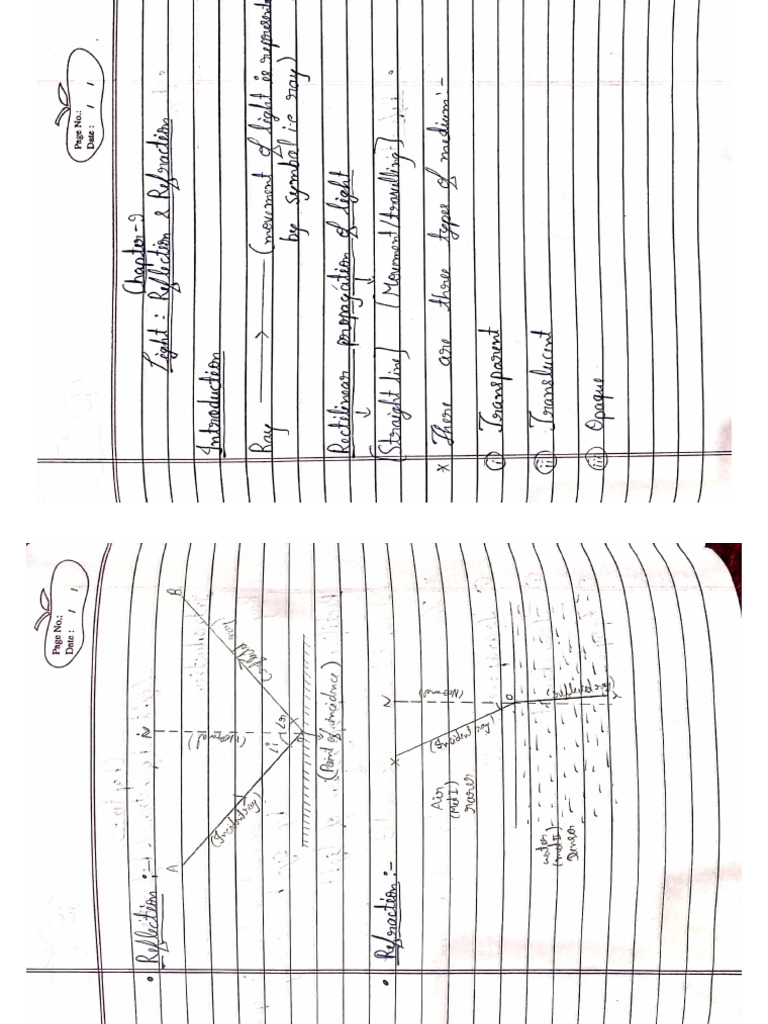 Page No.:
Date :
Chapter-9
Light: Reflection & Refraction
Introduction
Ray → (movement of light is represente
by symbol i.e ray)
Rectilinear propagation of light
[Straight line] [Movement/travelling]
× There are three types of medium:-
(i) Transparent
(ii) Translucent
(iii) Opaque
Page No.:
Date :
• Reflection :-
A N B
(Incident ray) (Normal) (reflected ray)
∠i ∠r
O
(Point of incidence)
• Refraction :-
X N
(incident ray) (Normal)
Air
(Med I)
rarer
O
water
(med II)
Denser
(refracted ray)
Y